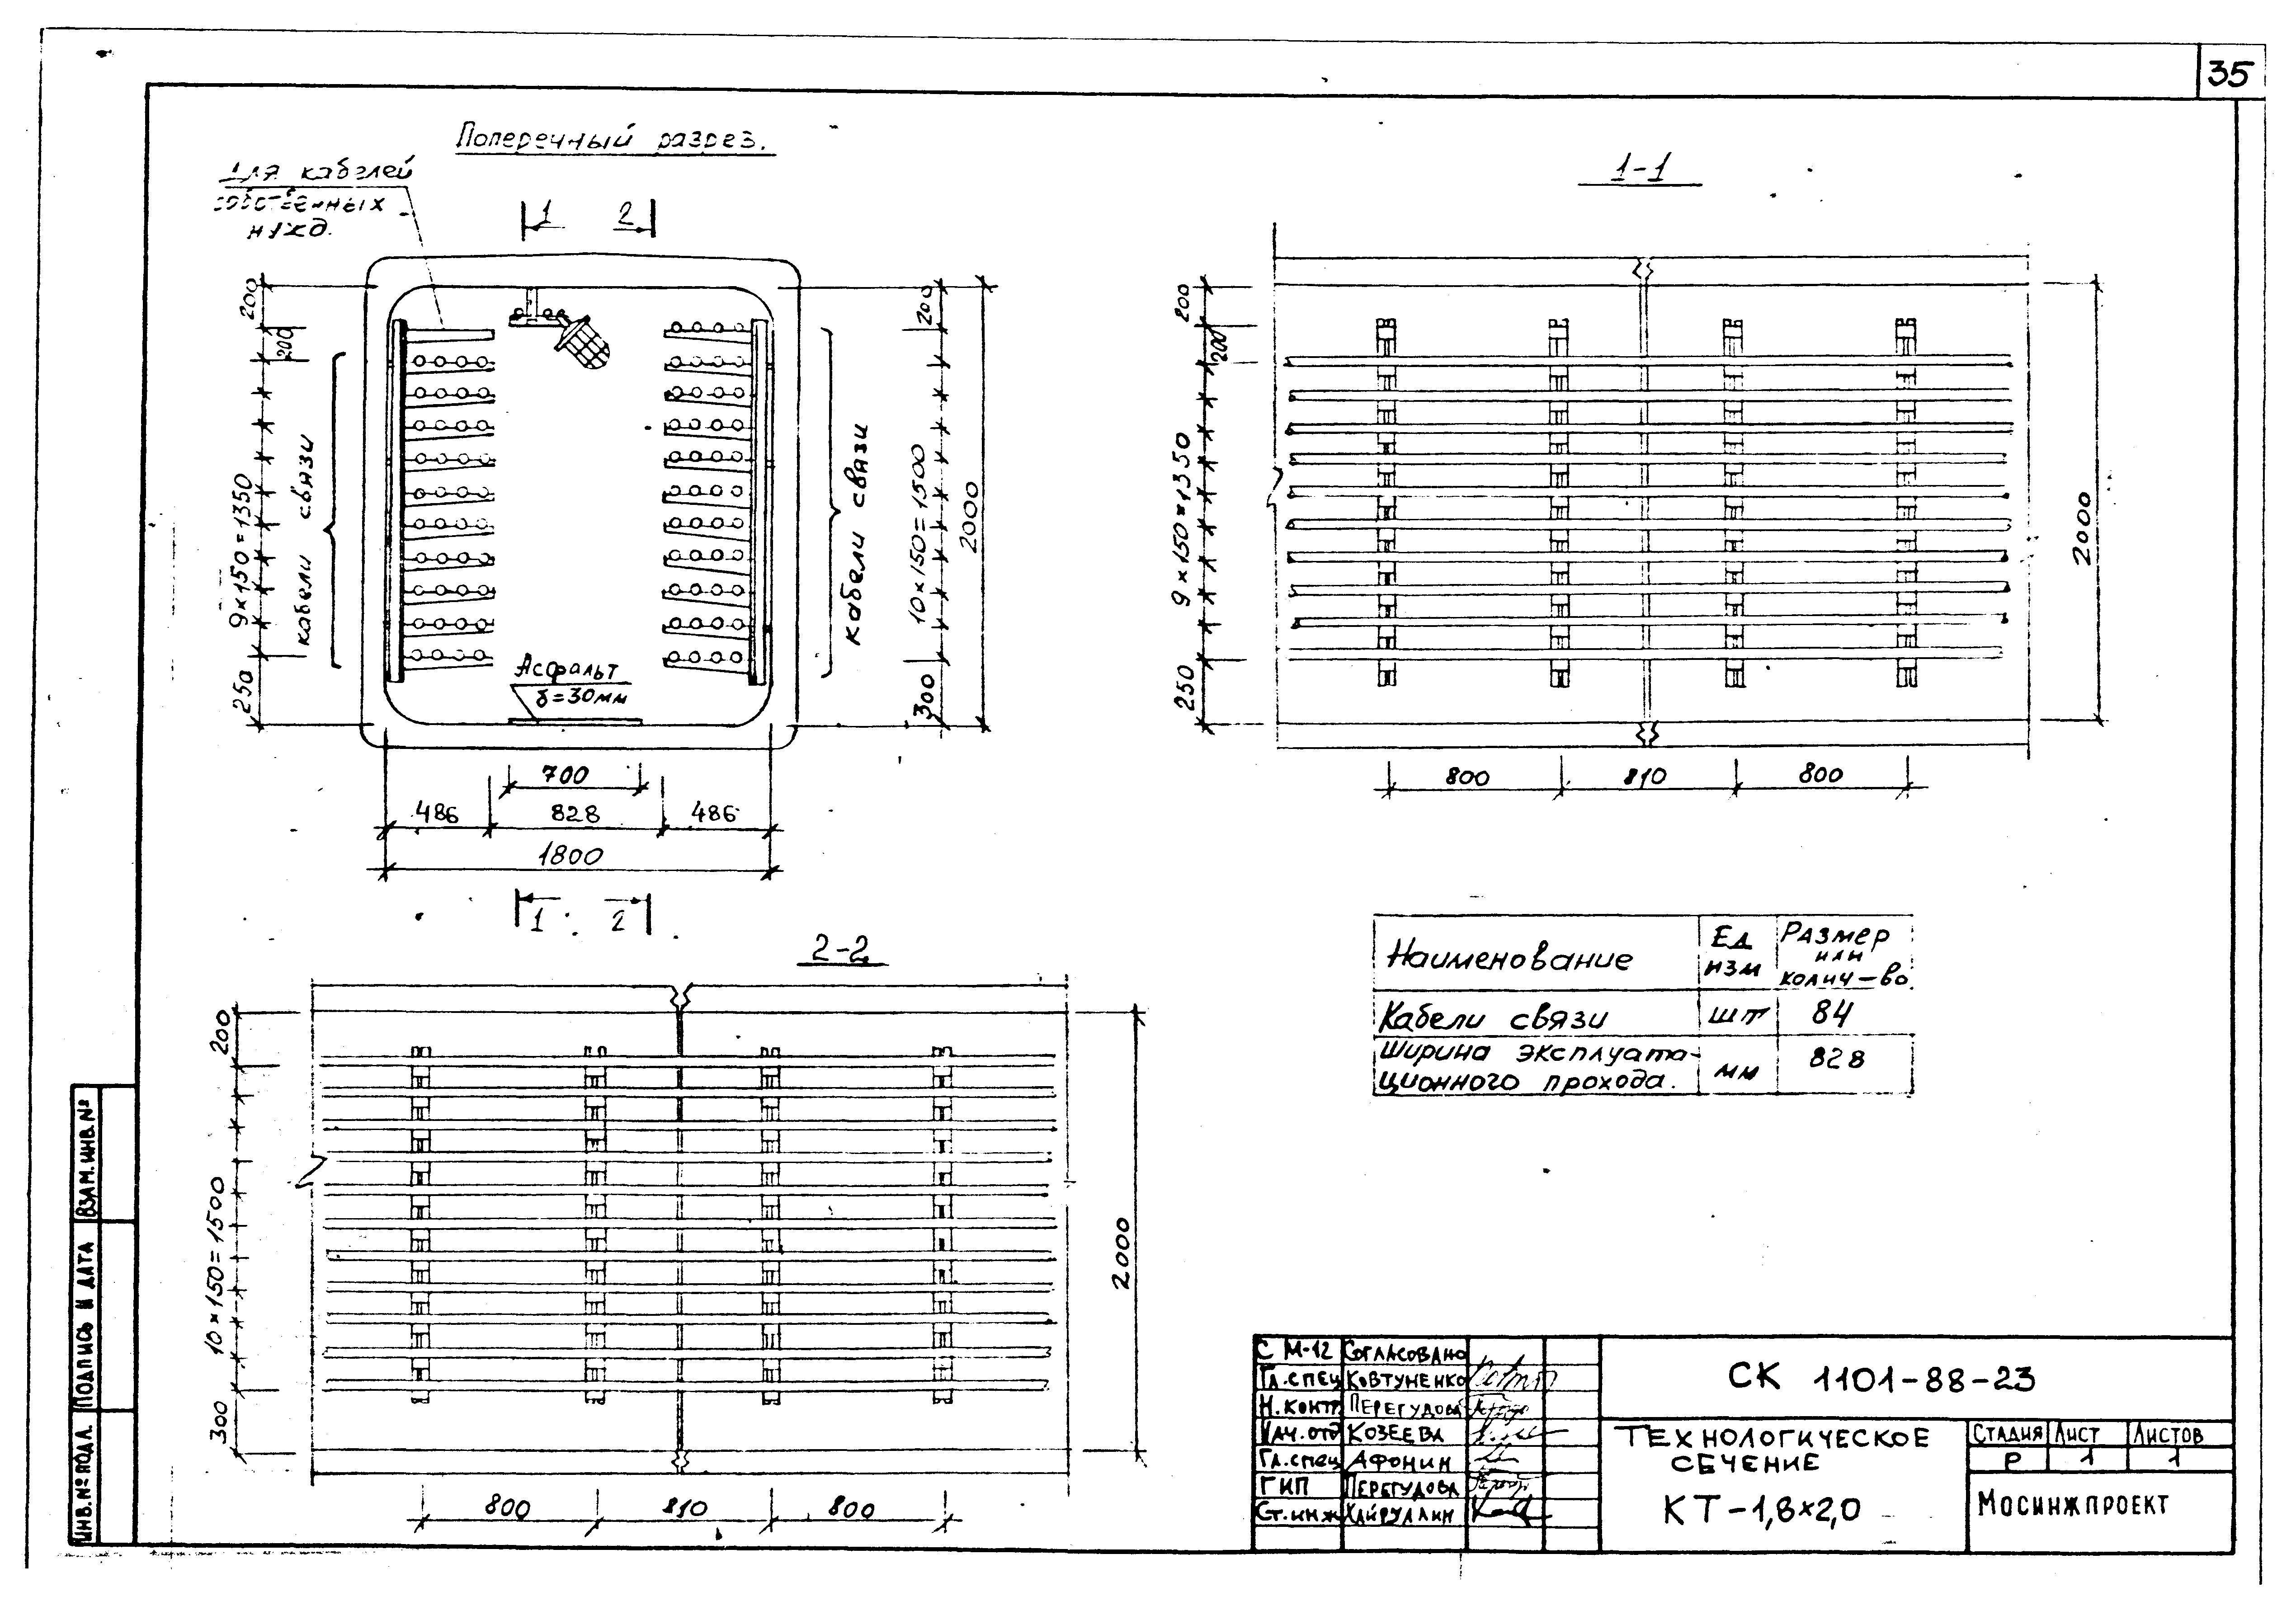 35
Поперечный разрез.
Для кабелей
собственных
нужд.
1 2
200
200
9×150=1350
250
кабели связи
Асфальт
δ=30мм
кабели связи
200
10×150=1500
300
2000
700
486 828 486
1800
1 2
1-1
200
200
9×150=1350
250
2000
800 810 800
2-2
200
10×150=1500
300
2000
800 810 800
Наименование Ед изм Размер или колич-во
Кабели связи шт 84
Ширина эксплуата-
ционного прохода. мм 828
ВЗАМ. ИНВ. №
ПОДПИСЬ И ДАТА
ИНВ. № ПОДЛ.
С М-12 СОГЛАСОВАНО
ГЛ.СПЕЦ КОВТУНЕНКО
Н.КОНТР ПЕРЕГУДОВА
НАЧ.ОТД КОЗЕЕВА
ГЛ.СПЕЦ АФОНИН
ГИП ПЕРЕГУДОВА
СТ.ИНЖ ХАЙРУЛЛИН
СК 1101-88-23
ТЕХНОЛОГИЧЕСКОЕ
СЕЧЕНИЕ
КТ-1,8×2,0
СТАДИЯ ЛИСТ ЛИСТОВ
Р 1 1
МОСИНЖПРОЕКТ